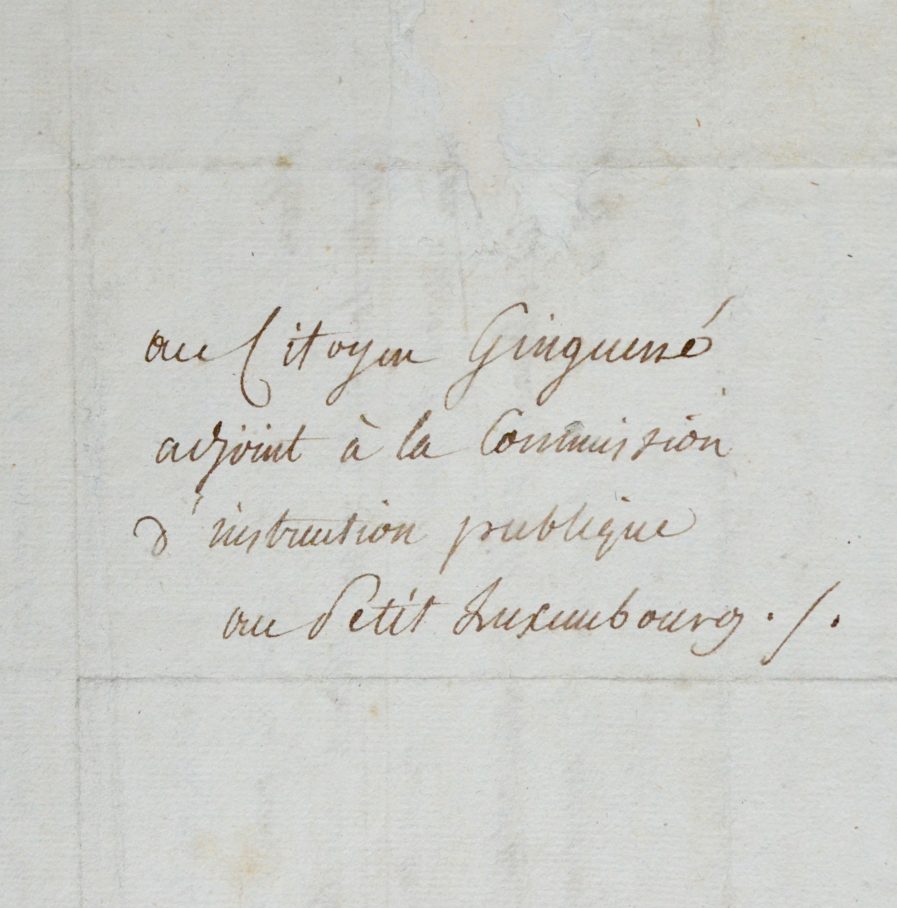 au Citoyen Ginguené
adjoint à la Commission
d'instruction publique
au Petit Luxembourg ./.